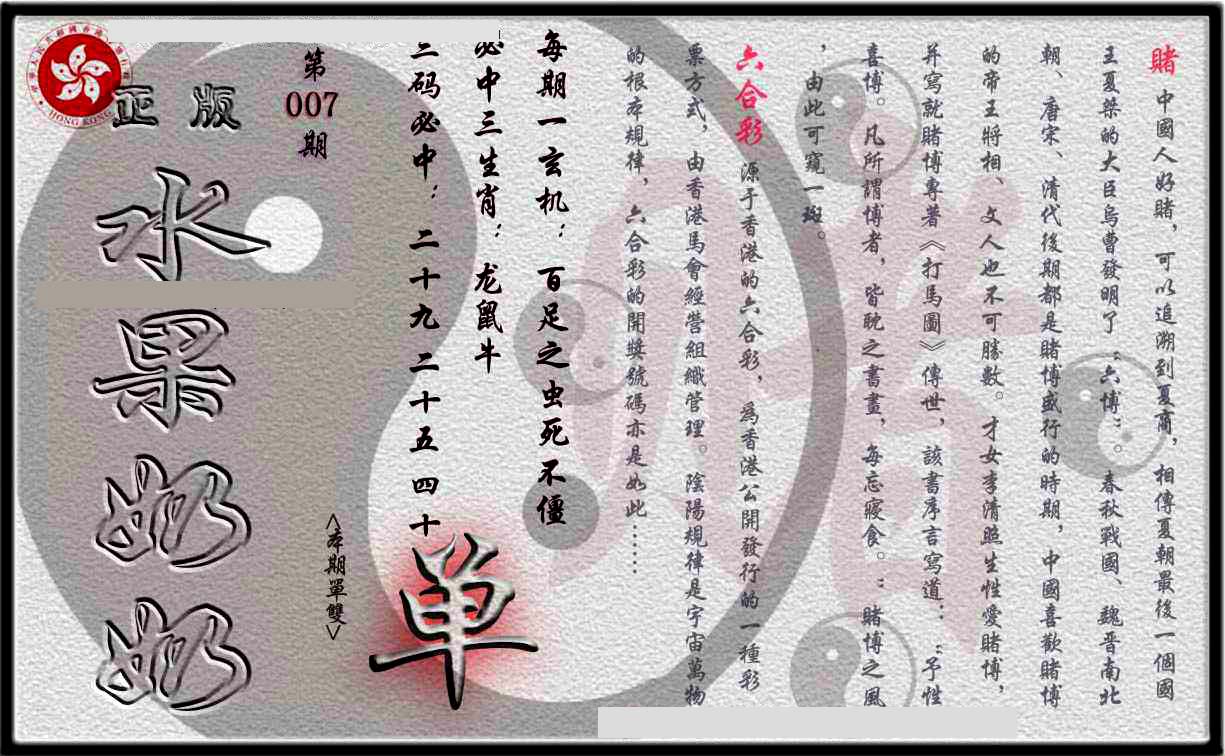 賭 中國人好賭，可以追溯到夏商，相傳夏朝最後一個國
王夏桀的大臣烏曹發明了“六博”。春秋戰國、魏晋南北
朝、唐宋、清代後期都是賭博盛行的時期，中國喜歡賭博
的帝王將相、文人也不可勝數。才女李清照生性愛賭博，
并寫就賭博專著《打馬圖》傳世，該書序言寫道：“予性
喜博。凡所謂博者，皆耽之書畫，每忘寢食。”賭博之風
，由此可窺一斑。
六合彩 源于香港的六合彩，爲香港公開發行的一種彩
票方式，由香港馬會經營組織管理。陰陽規律是宇宙萬物
的根本規律，六合彩的開獎號碼亦是如此……
每期一玄机：百足之虫死不僵
必中三生肖：龙鼠牛
三码必中：二十九 二十五 四十
单
<本期單雙>
第007期
正版
水果奶奶
HONG KONG